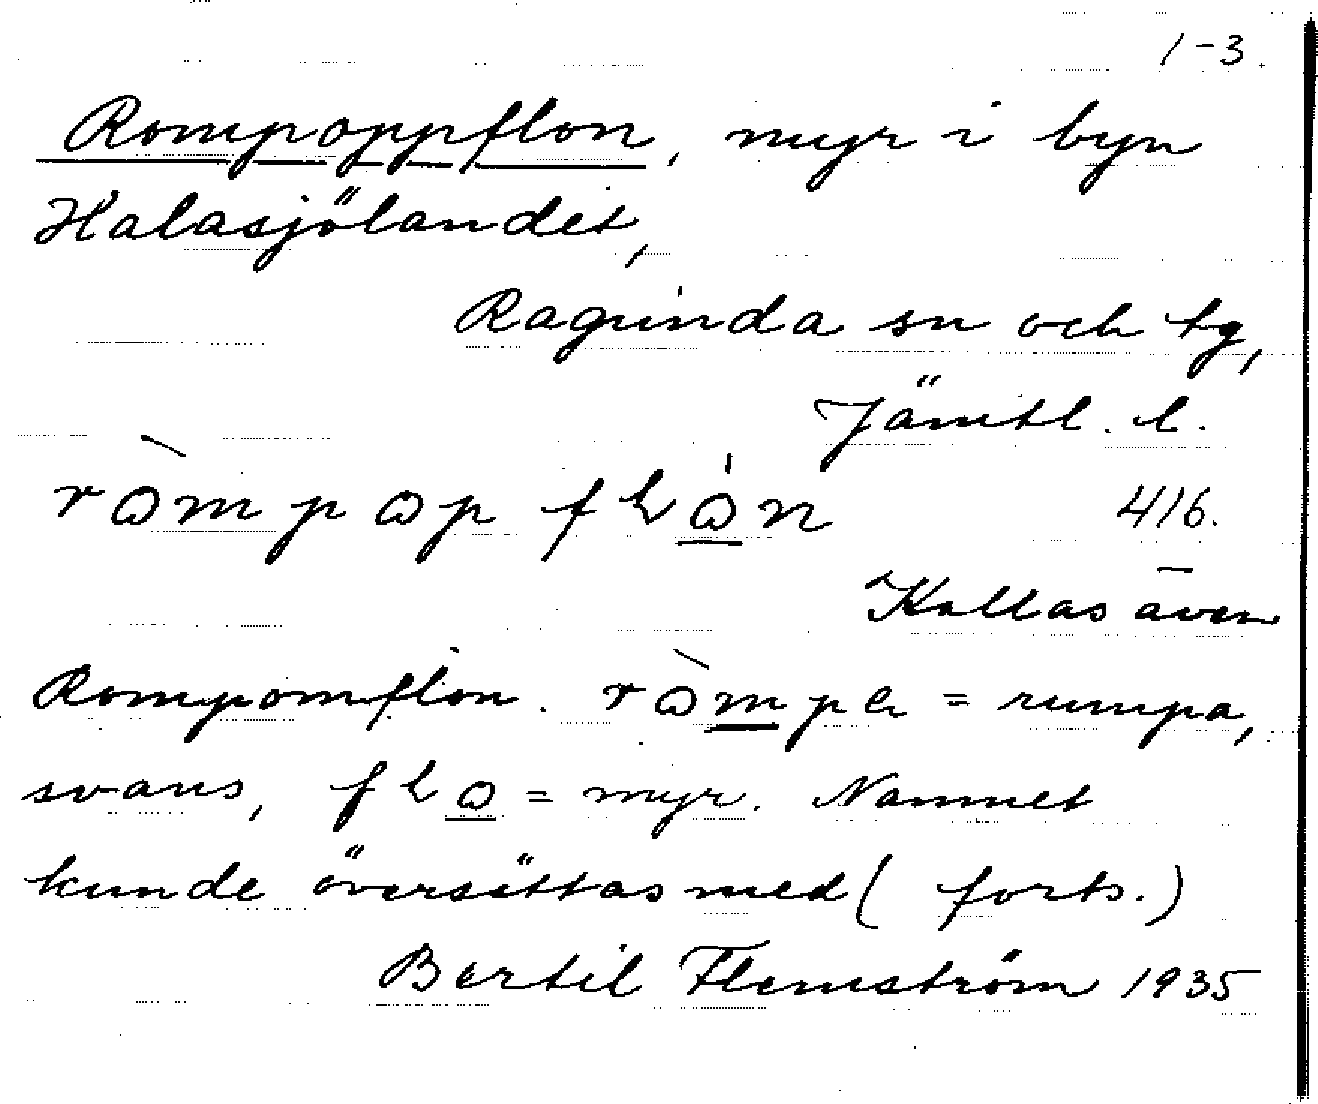 1-3.
Rompoppflon, myr i byn
Halasjölandet,
Ragunda sn och tg,
Jämtl. l.
416.
Kallas även
Rompomflon. = rumpa,
svans, = myr. Namnet
kunde översättas med (forts.)
Bertil Flemström 1935